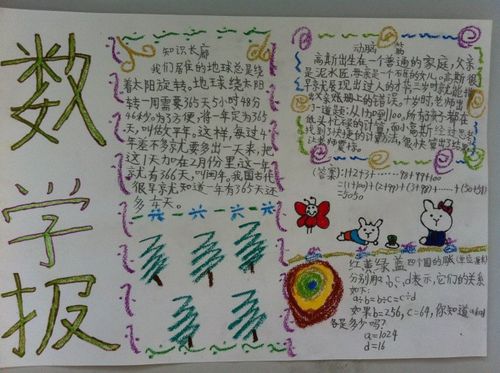 数
学
报
知识长廊
我们居住的地球总是绕
着太阳旋转。地球绕太阳
转一周需要365天5小时48分
46秒。为了方便,将一年定为365
天,叫做平年。这样,每过4
年差不多就要多出一天来,把
这1天加在2月份里,这一年
就有366天,叫闰年。我国古代
很早就知道一年有365天还
多 天。
动脑 篇
高斯出生在一个普通的家庭,父亲
是泥水匠,
很早就展现出过人的才华,三岁时就能指
出父亲账册上的错误。十岁时,老师出
了一道题:从1加到100,所有孩子都在
找到了快捷的计算方法,很快
让老师震惊。
(答案):1+2+3+……98+99+100
=(1+100)+(2+99)+(3+98)+……+(50+51)
=5050
红黄绿蓝四个圆的
分别用a、b、c、d表示,它们的关系
如下:
a÷b=b÷c=c÷d
如果b=256,c=64,你知道
各是多少吗?
a=1024
d=16